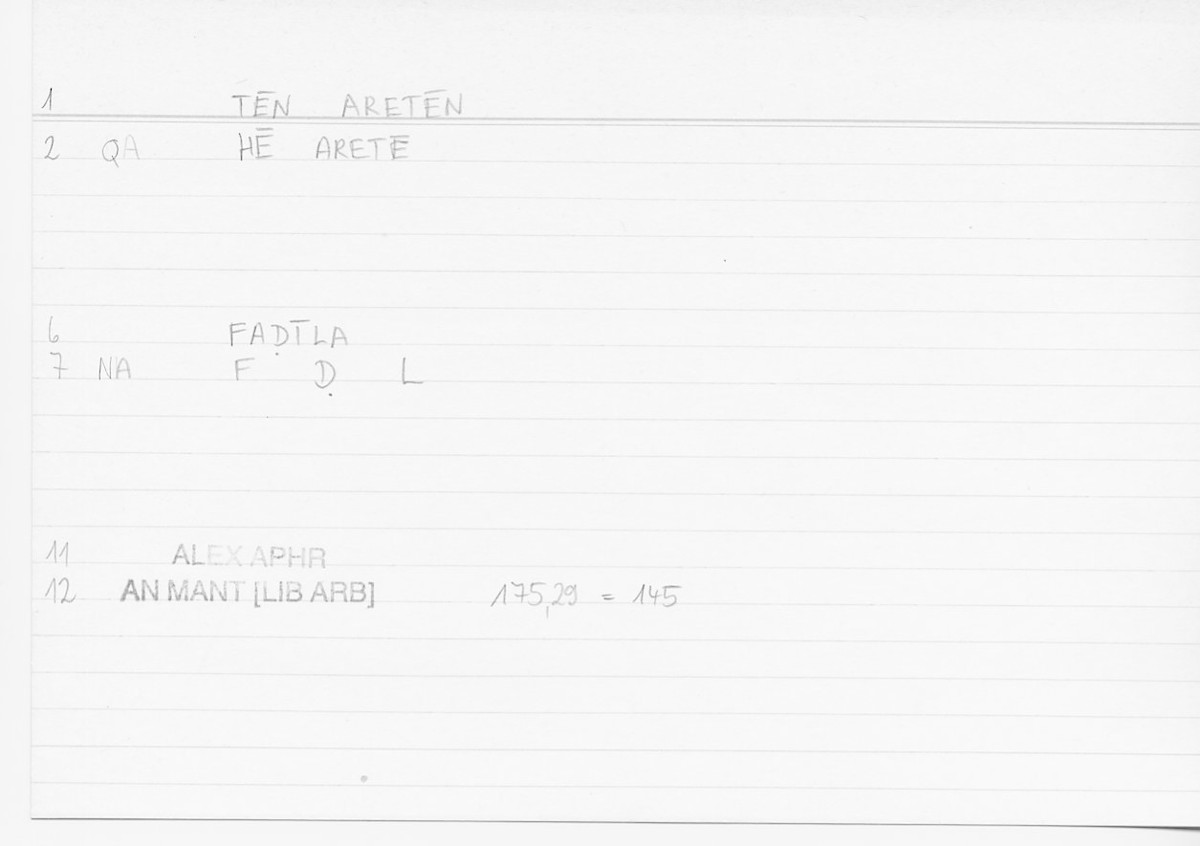 1 TĒN ARETĒN
2 QA HĒ ARETĒ
6 FAḌĪLA
7 NA F Ḍ L
11 ALEX APHR
12 AN MANT [LIB ARB] 175,29 = 145